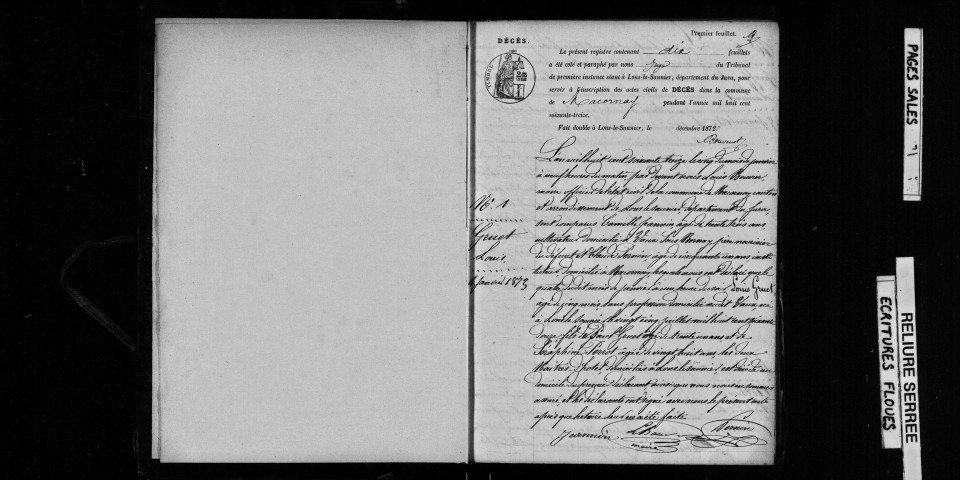 Premier feuillet.
DÉCÈS.
Le présent registre contenant dix feuillets
a été coté et paraphé par nous Juge du Tribunal
TIMBRE
de première instance séant à Lons-le-Saunier, département du Jura, pour
servir à l'inscription des actes civils de DÉCÈS dans la commune
de Macornay pendant l'année mil huit cent
soixante-treize.
Fait double à Lons-le-Saunier, le décembre 1872.
L'an mil huit cent soixante treize le cinq du mois de janvier
à neuf heures du matin, par devant nous Louis Bouvier
maire officier de l'état civil de la commune de Macornay canton
et arrondissement de Lons le Saunier, département du Jura
N° 1
sont comparus Camille Jeannin âgé de trente trois ans
cultivateur domicilié à Vaux sous Bornay, père nourricier
Gruet
du défunt et Claude Perrein âgé de cinquante un ans insti
Louis
tuteur domicilié à Macornay lesquels nous ont déclaré que le
4 janvier 1873
quatre dudit mois de janvier à une heure du soir, Louis Gruet
âgé de cinq mois, sans profession domicilié audit Vaux, né
à Lons le Saunier le vingt cinq juillet mil huit cent soixante
douze fils de Gruet âgé de trente un ans et de
Séraphine Perrot âgée de vingt huit ans les deux
Maîtres d'hôtel domiciliés à Lons le Saunier, est décédé au
domicile du premier déclarant ainsi que nous nous en sommes
assuré, et les déclarants ont signé avec nous le présent acte
après que lecture leur en a été faite
Jeannin
maire
Perrein
PAGES SALES
RELIURE SERREE
ECRITURES FLOUES